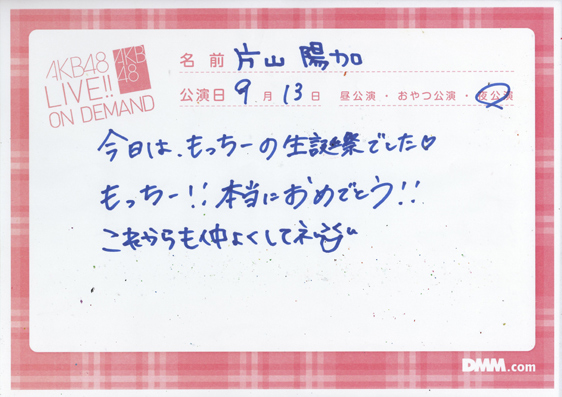 AKB48
LIVE!!
ON DEMAND
AKB
48
名前 片山 陽加
公演日 9月13日 昼公演・おやつ公演・夜公演
今日は、もっちーの生誕祭でした♡
もっちー!!本当におめでとう!!
これからも仲よくしてネ
DMM.com